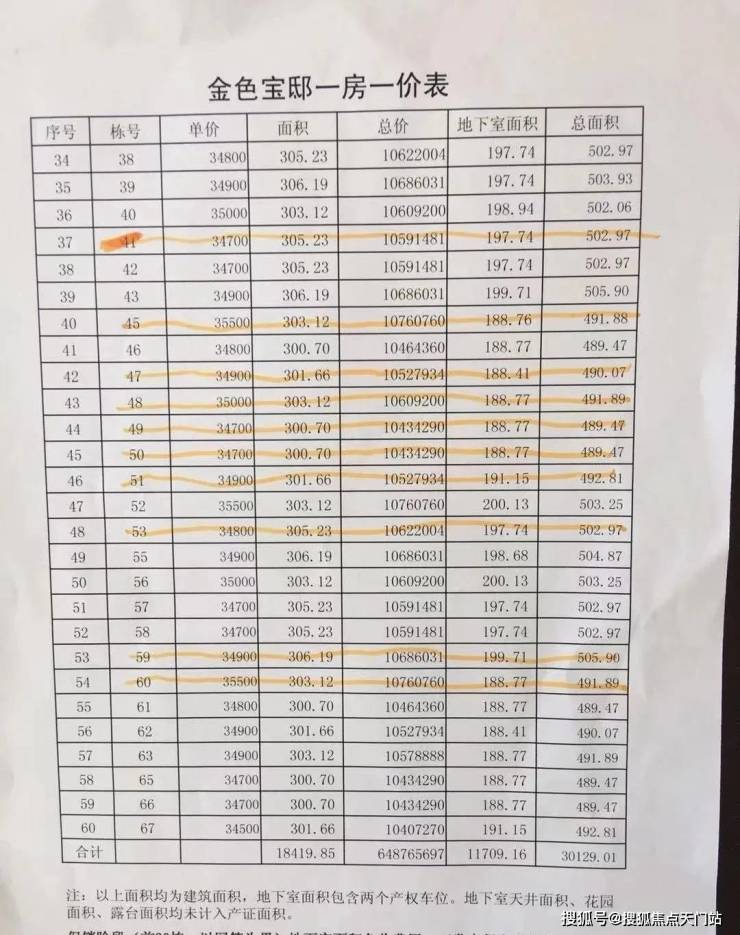 金色宝邸一房一价表
序号 栋号 单价 面积 总价 地下室面积 总面积
34 38 34800 305.23 10622004 197.74 502.97
35 39 34900 306.19 10686031 197.74 503.93
36 40 35000 303.12 10609200 198.94 502.06
37 41 34700 305.23 10591481 197.74 502.97
38 42 34700 305.23 10591481 197.74 502.97
39 43 34900 306.19 10686031 199.71 505.90
40 45 35500 303.12 10760760 188.76 491.88
41 46 34800 300.70 10464360 188.77 489.47
42 47 34900 301.66 10527934 188.41 490.07
43 48 35000 303.12 10609200 188.77 491.89
44 49 34700 300.70 10434290 188.77 489.47
45 50 34700 300.70 10434290 188.77 489.47
46 51 34900 301.66 10527934 191.15 492.81
47 52 35500 303.12 10760760 200.13 503.25
48 53 34800 305.23 10622004 197.74 502.97
49 55 34900 306.19 10686031 198.68 504.87
50 56 35000 303.12 10609200 200.13 503.25
51 57 34700 305.23 10591481 197.74 502.97
52 58 34700 305.23 10591481 197.74 502.97
53 59 34900 306.19 10686031 199.71 505.90
54 60 35500 303.12 10760760 188.77 491.89
55 61 34800 300.70 10464360 188.77 489.47
56 62 34900 301.66 10527934 188.41 490.07
57 63 34900 303.12 10578888 188.77 491.89
58 65 34700 300.70 10434290 188.77 489.47
59 66 34700 300.70 10434290 188.77 489.47
60 67 34500 301.66 10407270 191.15 492.81
合计 18419.85 648765697 11709.16 30129.01
注：以上面积均为建筑面积，地下室面积包含两个产权车位。地下室天井面积、花园
面积、露台面积均未计入产证面积。
搜狐号@搜狐焦点天门站